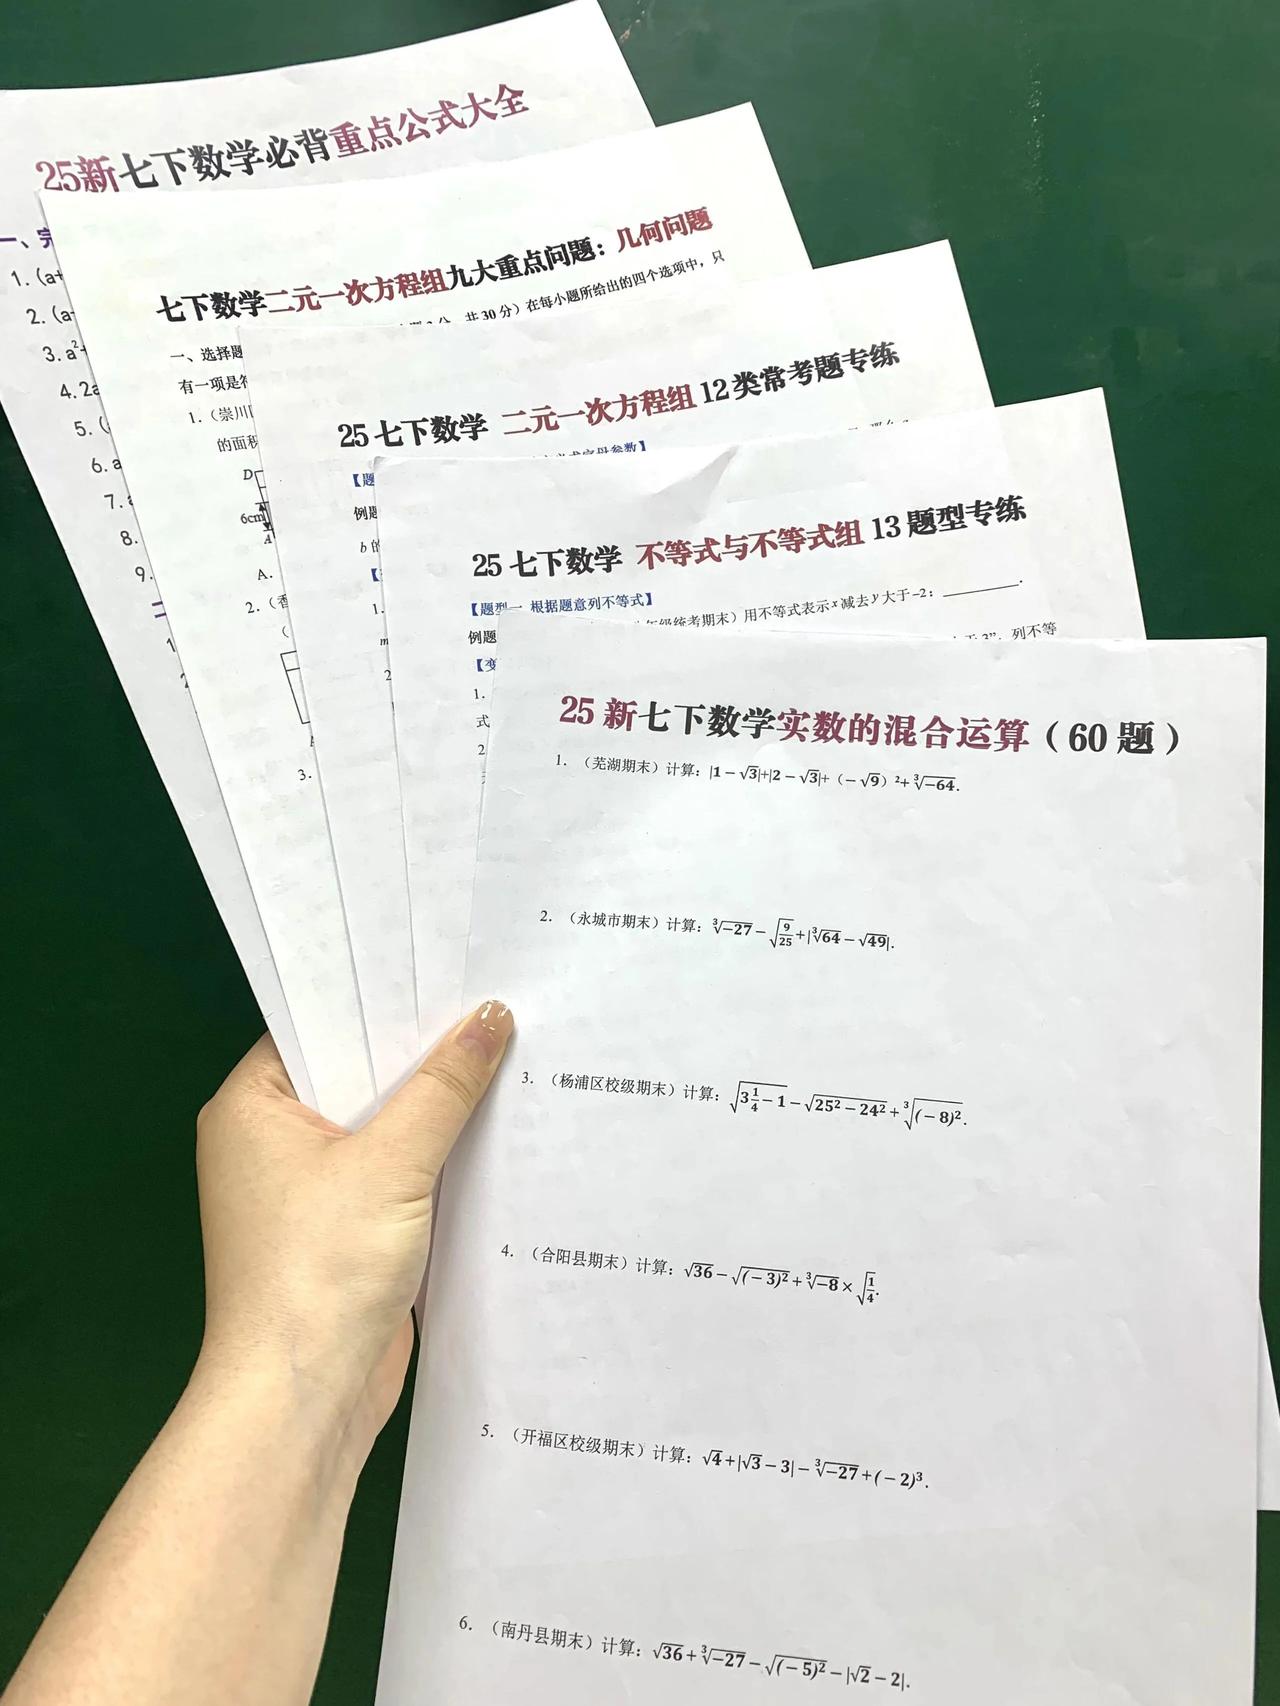 25新七下数学必背重点公式大全
一、完
1.(a+
2.(a
3.a²+
4.2a
5.(
6.a
7.
8.
9.
七下数学二元一次方程组九大重点问题：几何问题
共30分）在每小题所给出的四个选项中，只
一、选择题
有一项是符
1.（崇川
的面积
D
6cm
A
A.
2.（香
（
3.
25 七下数学 二元一次方程组 12 类常考题专练
【题
例题
b 的
【
1.
m
2
25 七下数学 不等式与不等式组 13 题型专练
【题型一 根据题意列不等式】
例题 年级统考期末）用不等式表示 x 减去 y 大于 -2：________.
3”，列不等
【变
1.
式
2
25 新七下数学实数的混合运算（60 题）
1. （芜湖期末）计算：|1－√3|+|2－√3|+（－√9）²+∛−64.
2. （永城市期末）计算：∛−27－√(9/25)+|∛64－√49|.
3. （杨浦区校级期末）计算：√(3 1/4－1)－√(25²－24²)+∛((－8)²).
4. （合阳县期末）计算：√36－√((－3)²)+∛−8×√(1/4).
5. （开福区校级期末）计算：√4+|√3－3|－∛−27+(－2)³.
6. （南丹县期末）计算：√36+∛−27－√((－5)²)－|√2－2|.